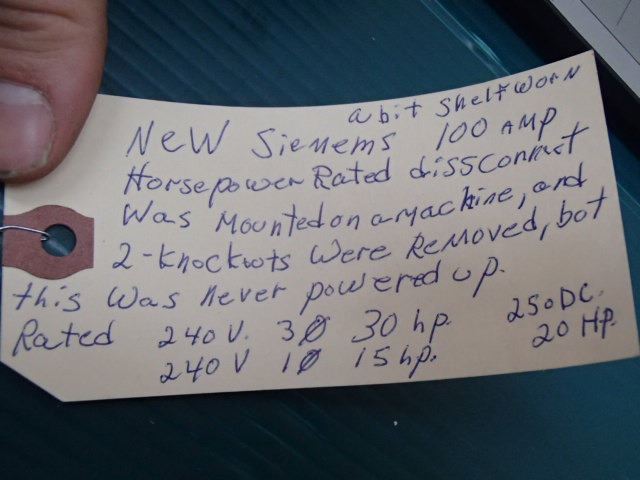 a bit Shelf worn
New Siemems 100 AMP
Horsepower Rated dissconnect
Was Mounted on a machine, and
2-knockouts Were Removed, but
this Was Never powered up.
Rated 240 V. 3Ø 30 hp. 250 DC.
240 V 1Ø 15 hp. 20 HP.